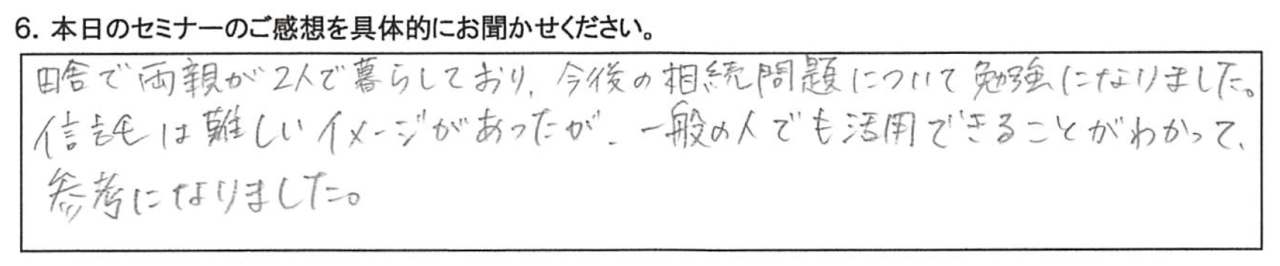 6. 本日のセミナーのご感想を具体的にお聞かせください。
田舎で両親が2人で暮らしており、今後の相続問題について勉強になりました。
信託は難しいイメージがあったが、一般の人でも活用できることがわかって、
参考になりました。